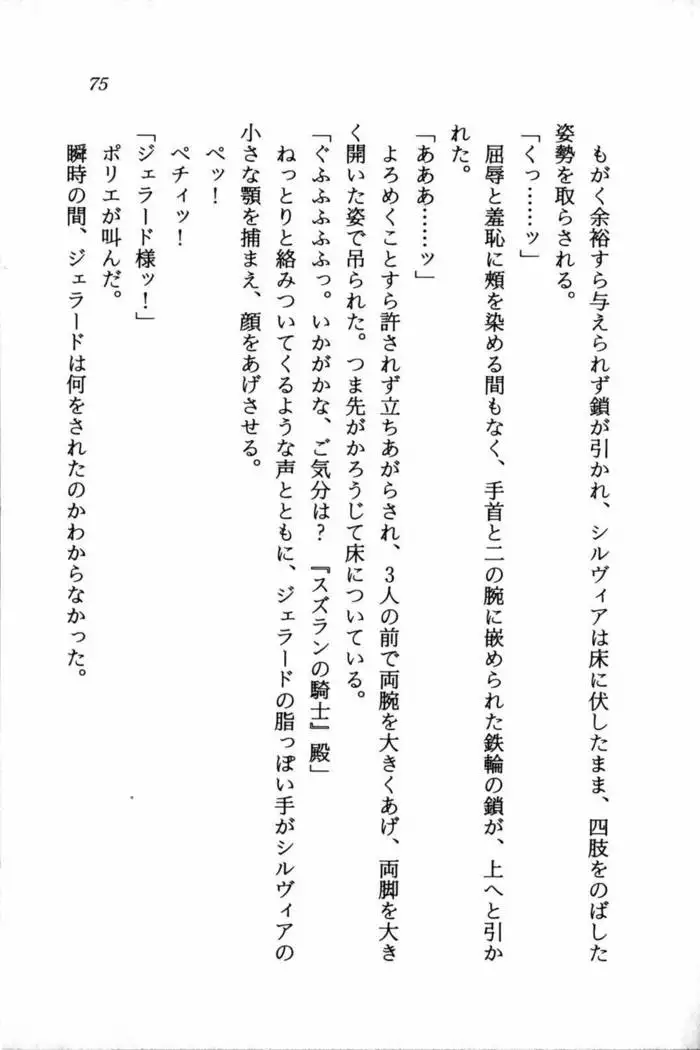 75
もがく余裕すら与えられず鎖が引かれ、シルヴィアは床に伏したまま、四肢をのばした
姿勢を取らされる。
「くっ……ッ」
屈辱と羞恥に頬を染める間もなく、手首と二の腕に嵌められた鉄輪の鎖が、上へと引か
れた。
「あああ……ッ」
よろめくことすら許されず立ちあがらされ、3人の前で両腕を大きくあげ、両脚を大き
く開いた姿で吊られた。つま先がかろうじて床についている。
「ぐふふふふっ。いかがかな、ご気分は？　『スズランの騎士』殿」
ねっとりと絡みついてくるような声とともに、ジェラードの脂っぽい手がシルヴィアの
小さな顎を捕まえ、顔をあげさせる。
ペッ！
ペチィッ！
「ジェラード様ッ！」
ポリエが叫んだ。
瞬時の間、ジェラードは何をされたのかわからなかった。